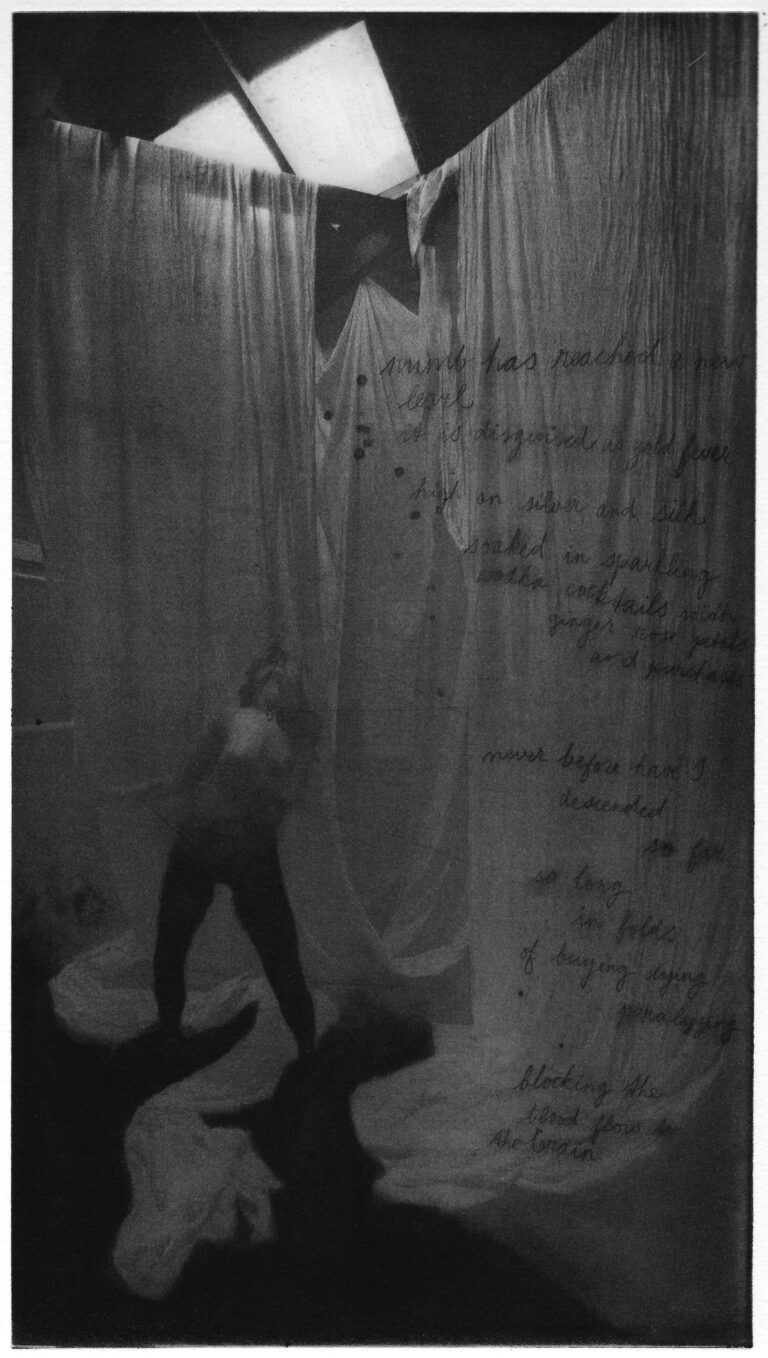 numb has reached a new
level
it is disguised as gold fever
high on silver and silk
soaked in sparkling
vodka cocktails with
ginger rose petals
and purchases
never before have I
descended
so far
so long
in folds
of buying dying
paralyzing
blocking the
blood flow to
the brain